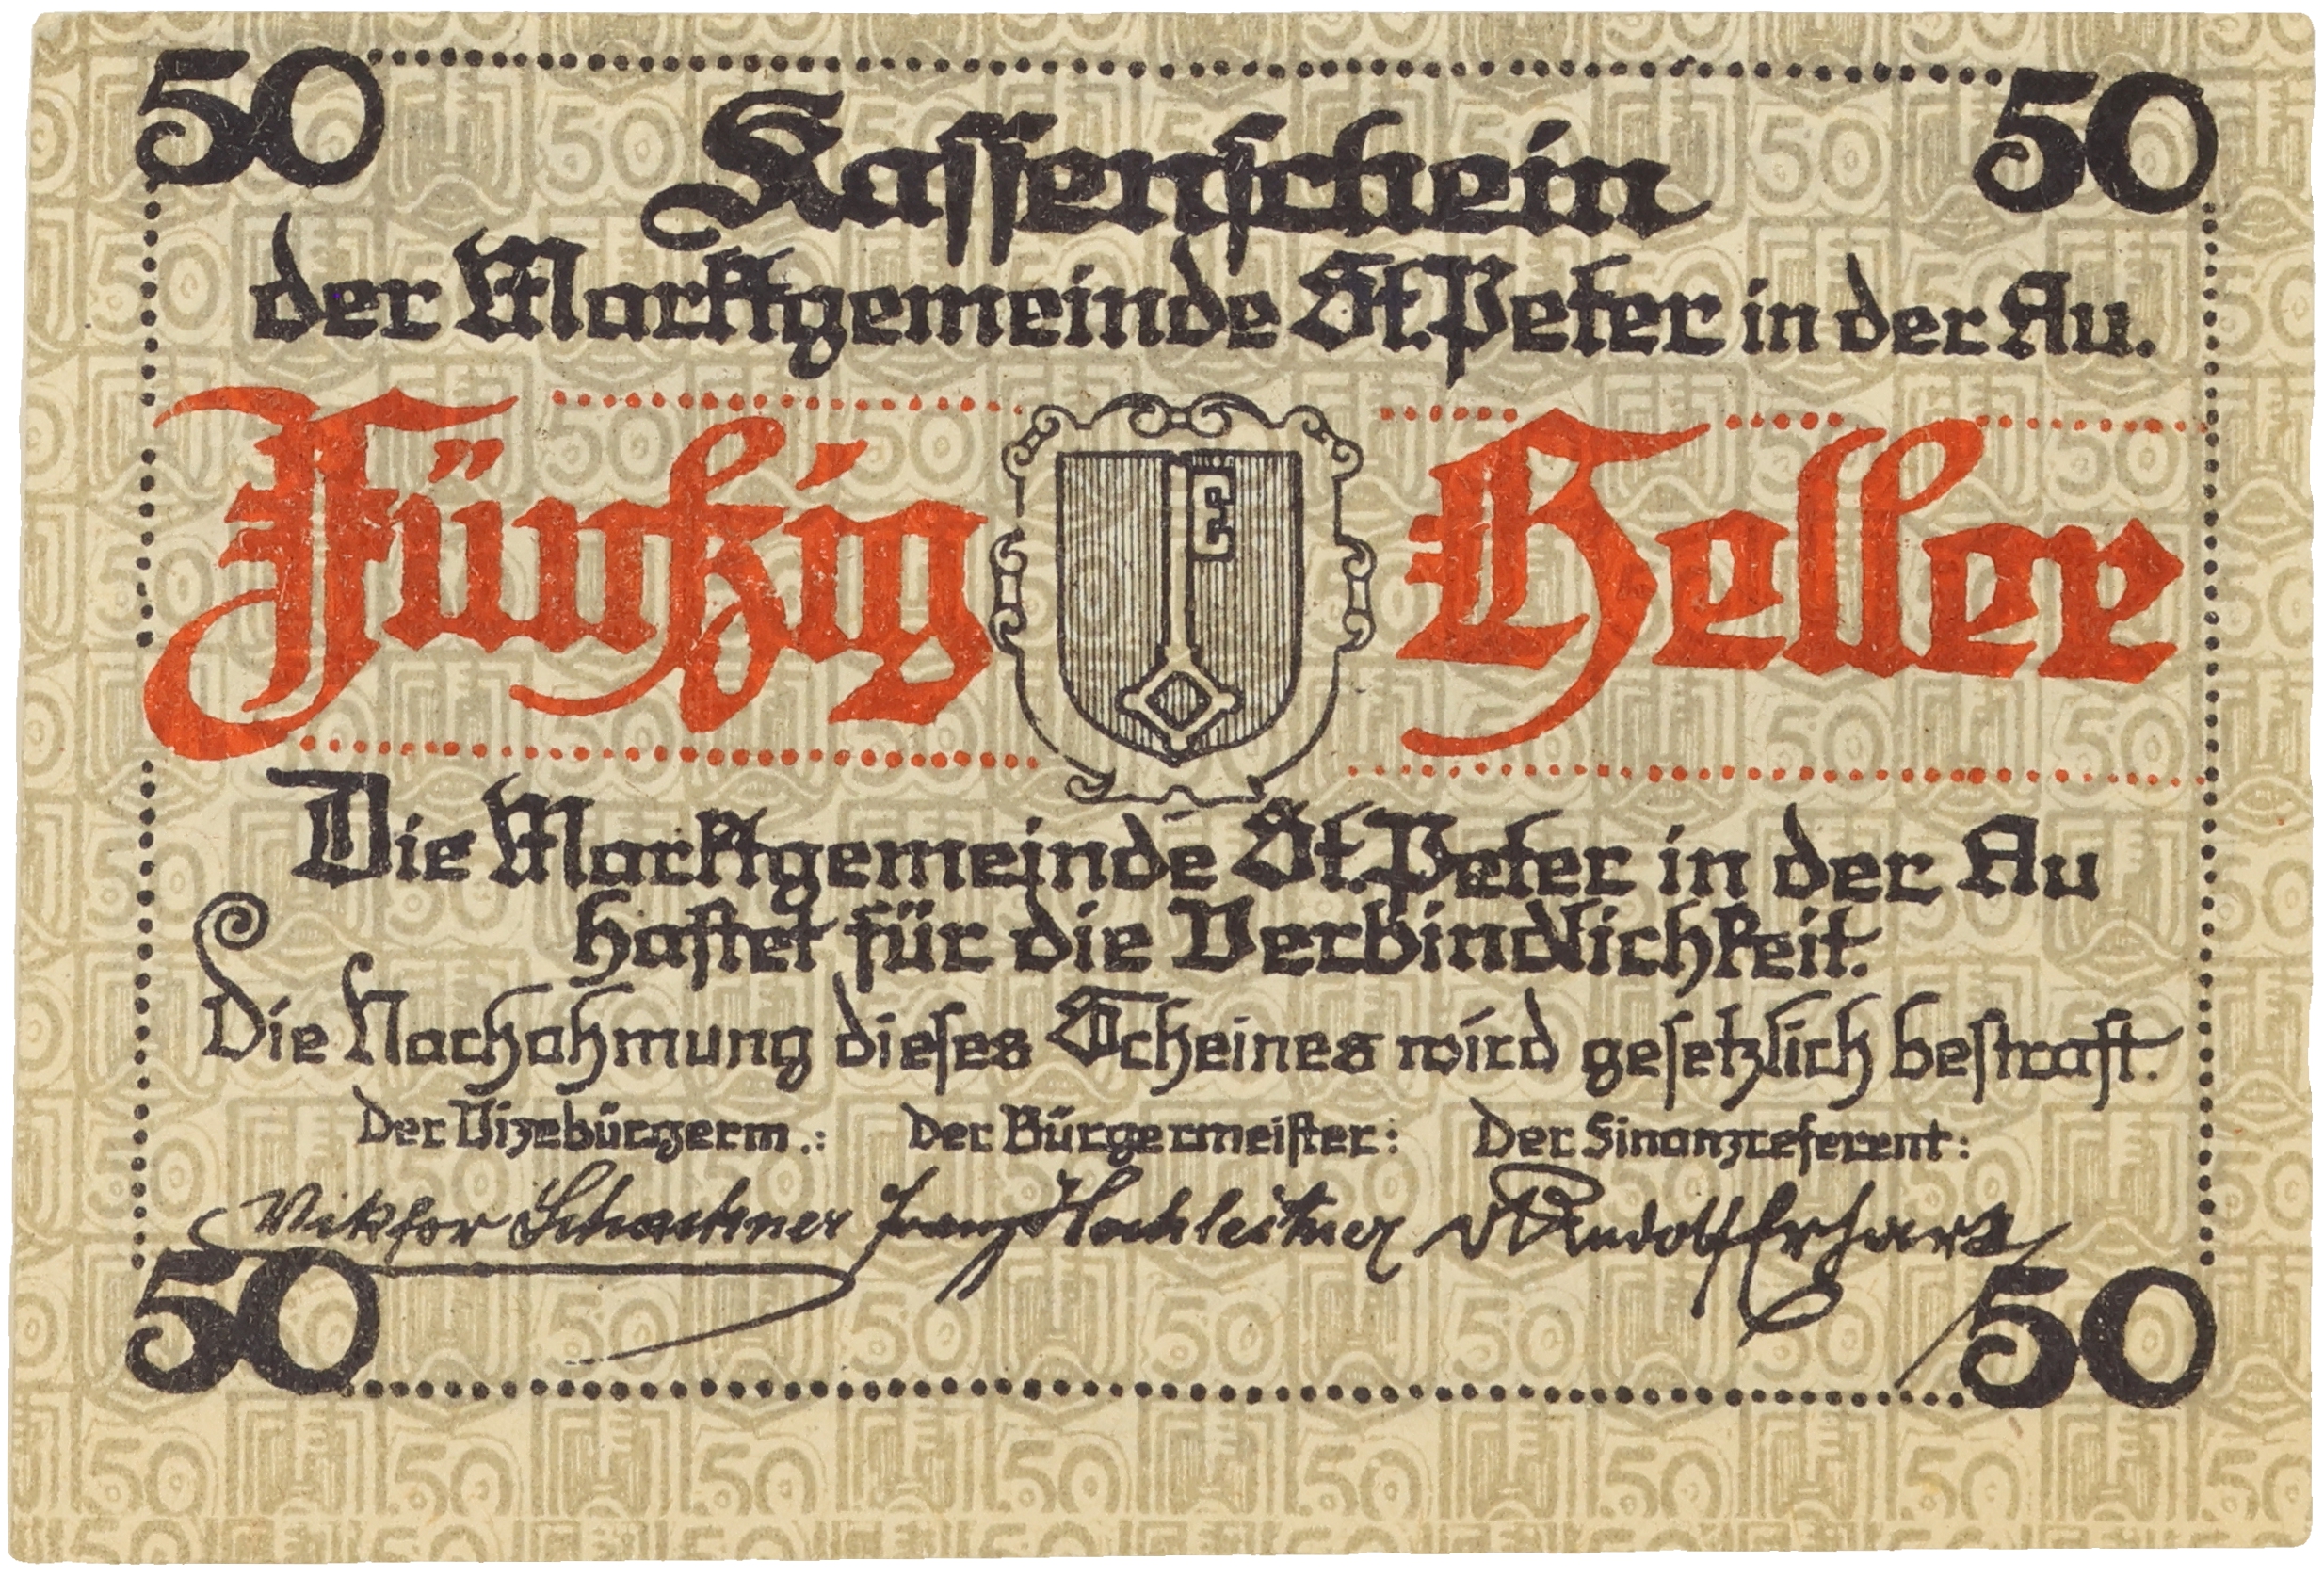 50 50
Kassenschein
der Marktgemeinde St. Peter in der Au.
Fünfzig Heller
Die Marktgemeinde St. Peter in der Au
haftet für die Verbindlichkeit.
Die Nachahmung dieses Scheines wird gesetzlich bestraft.
Der Vizebürgerm.: Der Bürgermeister: Der Finanzreferent:
Viktor Schachner Franz Hochleitner Rudolf Erhart
50 50